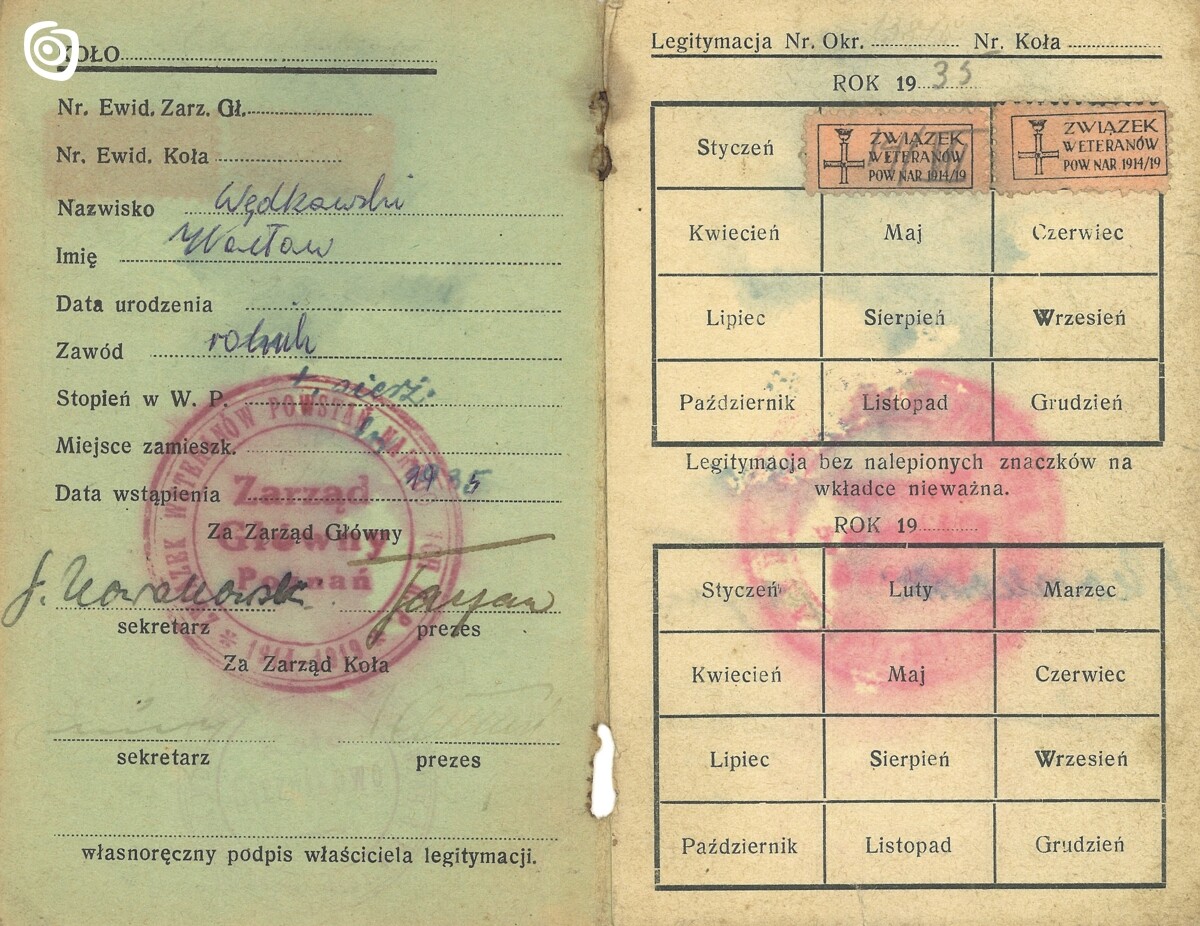 KOŁO
Nr. Ewid. Zarz. Gł.
Nr. Ewid. Koła
Nazwisko Wędkowski
Imię Wacław
Data urodzenia
Zawód rolnik
Stopień w W. P. sierż.
Miejsce zamieszk.
Data wstąpienia 1935
Zarząd
Za Zarząd Główny
Główny
Poznań
J. Nowakowski
sekretarz prezes
1914-1919
Za Zarząd Koła
sekretarz prezes
własnoręczny podpis właściciela legitymacji.
Legitymacja Nr. Okr. Nr. Koła
ROK 1935
Styczeń
ZWIĄZEK WETERANÓW POW. NAR. 1914/19
ZWIĄZEK WETERANÓW POW. NAR. 1914/19
Kwiecień Maj Czerwiec
Lipiec Sierpień Wrzesień
Październik Listopad Grudzień
Legitymacja bez nalepionych znaczków na
wkładce nieważna.
ROK 19
Styczeń Luty Marzec
Kwiecień Maj Czerwiec
Lipiec Sierpień Wrzesień
Październik Listopad Grudzień